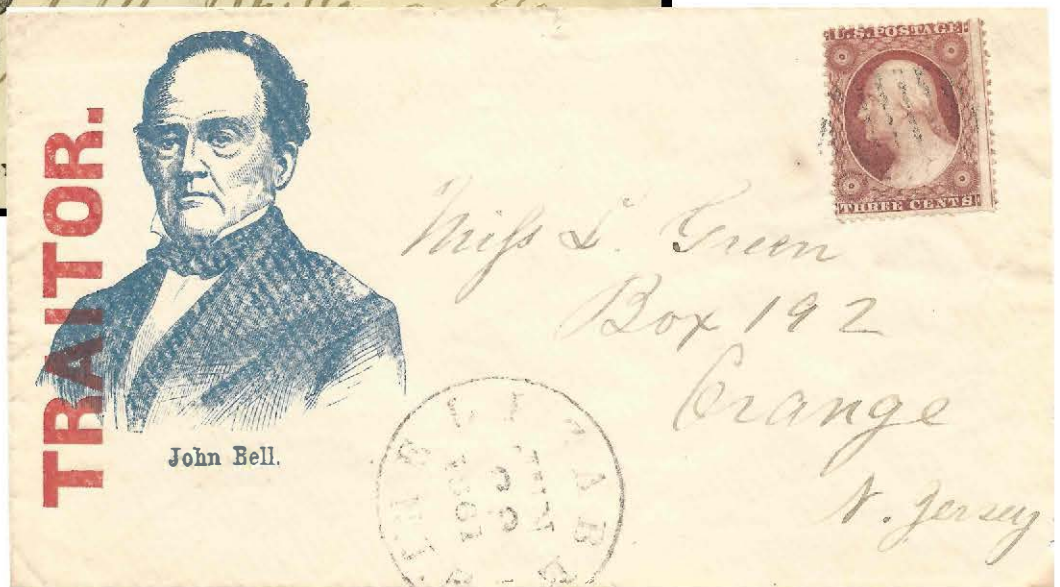 TRAITOR.
John Bell.
U.S. POSTAGE
THREE CENTS
Miss L. Green
Box 192
Orange
N. Jersey
JUN